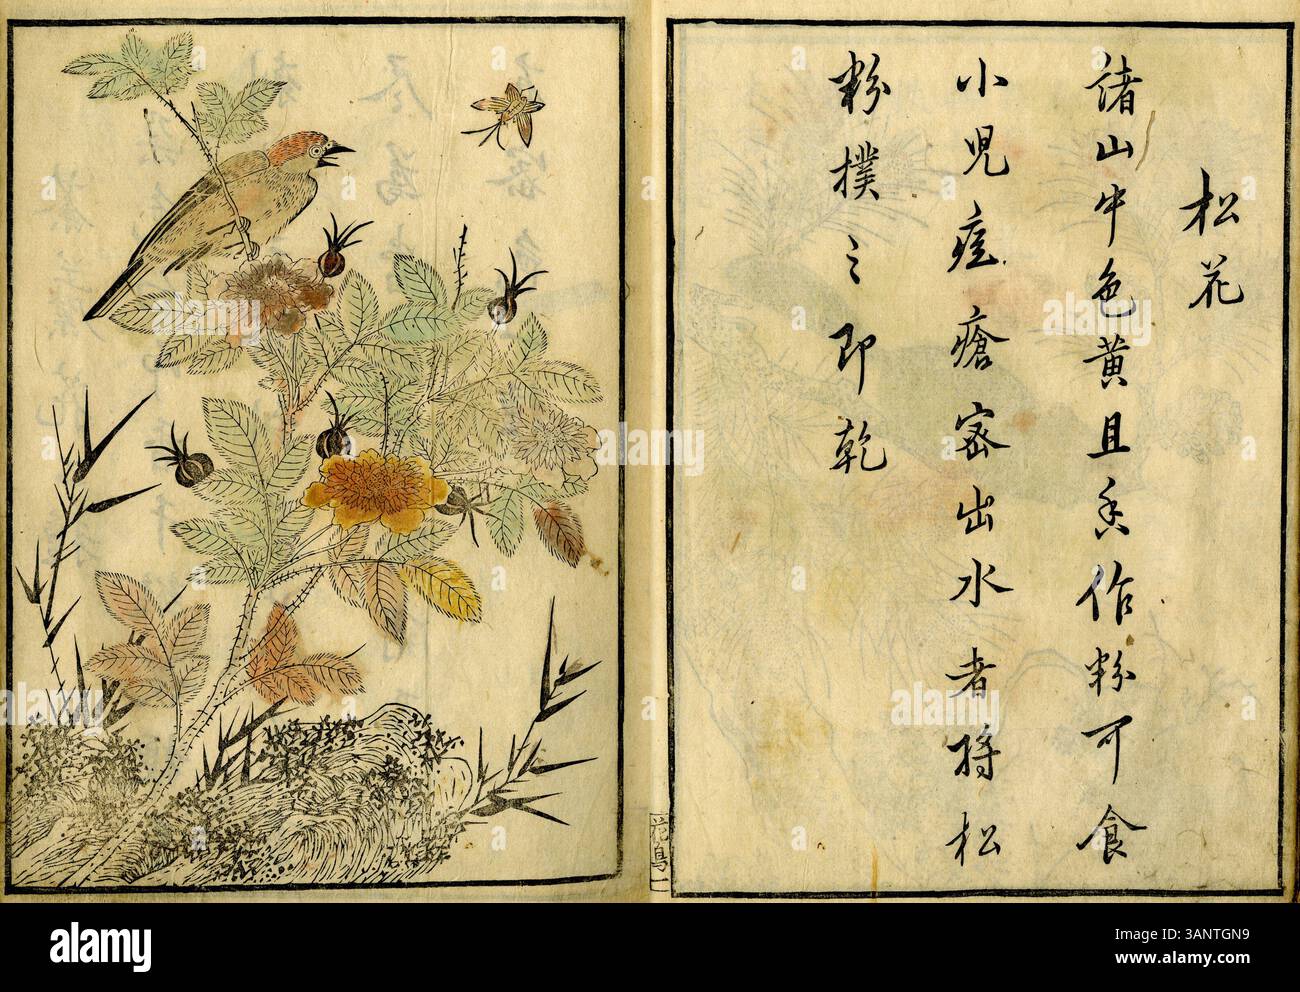 松花
諸山中色黄且香作粉可食
小児痘瘡密出水者将松
粉撲之即乾
花鳥一
alamy
Image ID: 3ANTGN9
www.alamy.com